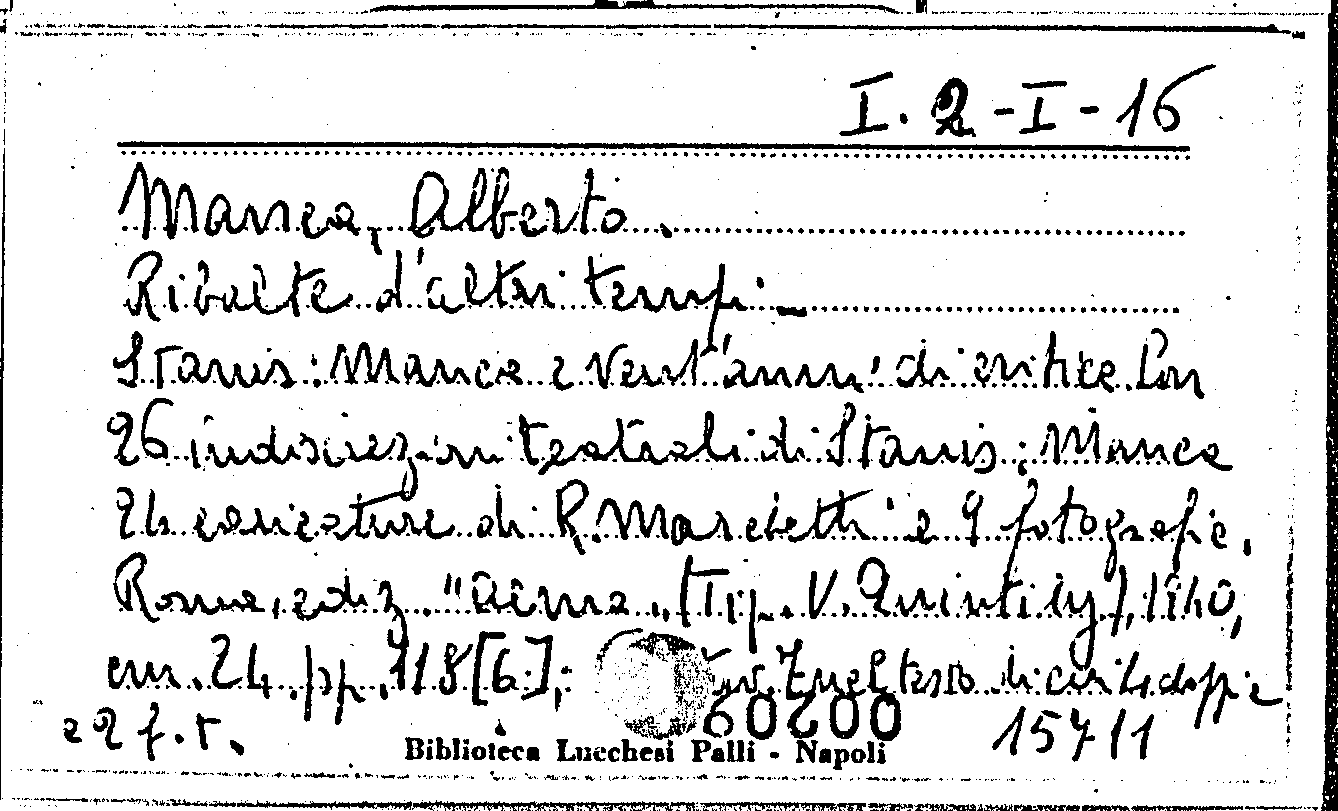 I. 2 - I - 16
Manca, Alberto.
Ribalte d'altri tempi -
Stanis: Manca e vent'anni di critica. Con
26 indiscrezioni teatrali di Stanis: Manca
24 caricature di R. Marchetti e 9 fotografie.
Roma, ediz. "Acma" (Tip. V. Quintily), 1940,
cm. 24. pp. 118 [6]; tav. 7 nel testo di cui 1 doppia
e 2 f.t. 00209 15711
Biblioteca Lucchesi Palli - Napoli